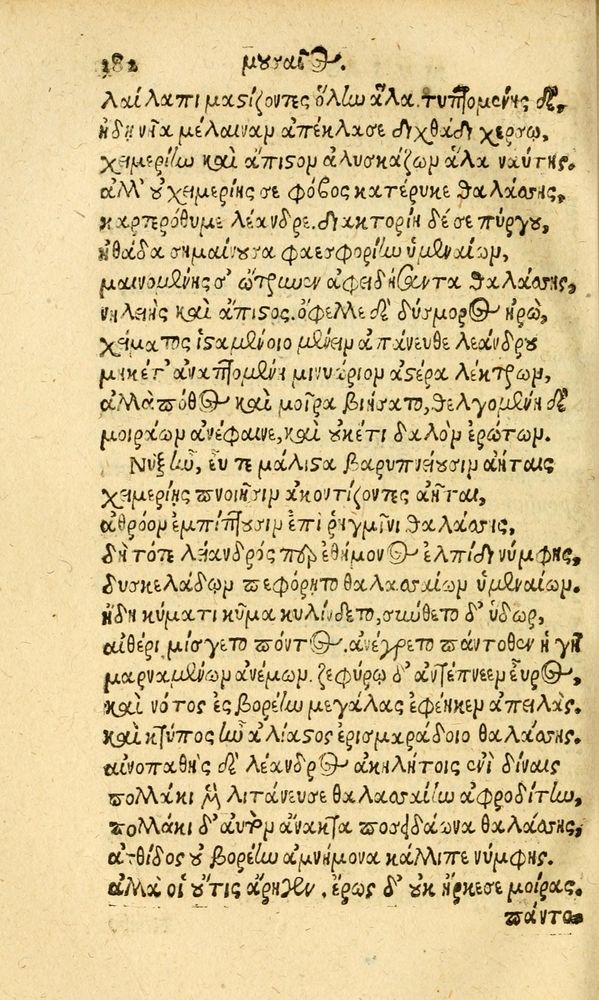 282 μουσαῖος.
λαίλαπι μαστίζοντες ὅλην ἅλα. τυπτομένης δὲ,
ἤδη νῆα μέλαιναν ἀπέκλασε διχθάδι χέρσῳ,
χειμερίην καὶ ἄπιστον ἀλυσκάζων ἅλα ναύτης.
ἀλλ' οὐ χειμερίης σε φόβος κατέρυκε θαλάσσης,
καρτερόθυμε λέανδρε. διακτορίη δέ σε πύργου,
ἠθάδα σημαίνουσα φαεσφορίην ὑμεναίων,
μαινομένης σ' ὤτρυνεν ἀφειδήσαντα θαλάσσης,
νηλειὴς καὶ ἄπιστος. ὄφελλε δὲ δύσμορος ἡρὼ,
χείματος ἱσταμένοιο μένειν ἀπάνευθε λεάνδρου
μηκέτ' ἀναπτομένη μινυώριον ἀστέρα λέκτρων,
ἀλλὰ πόθος καὶ μοῖρα βιήσατο, θελγομένη δὲ
μοιράων ἀνέφαινε, καὶ οὐκέτι δαλὸν ἐρώτων.
Νὺξ ἦν, εὖ τε μάλιστα βαρυπνείουσιν ἀήταις
χειμερίης πνοιῇσιν ἀκοντίζοντες ἀῆται,
ἀθρόον ἐμπίπτουσιν ἐπὶ ῥηγμῖνι θαλάσσης,
δὴ τότε λείανδρός περ ἐθήμονος ἐλπίδι νύμφης,
δυσκελάδων πεφόρητο θαλασσαίων ὑμεναίων.
ἤδη κύματι κῦμα κυλίνδετο, σύγχυτο δ' ὕδωρ,
αἰθέρι μίσγετο πόντος. ἀνέγρετο πάντοθεν ἠχὴ
μαρναμένων ἀνέμων. ζεφύρῳ δ' ἀντέπνεεν εὖρος,
καὶ νότος ἐς βορέην μεγάλας ἐφέηκεν ἀπειλὰς.
καὶ κτύπος ἦν ἀλίαστος ἐρισμαράδοιο θαλάσσης.
αἰνοπαθὴς δὲ λέανδρος ἀκηλήτοις ἐνὶ δίναις
πολλάκι μὲν λιτάνευσε θαλασσαίην ἀφροδίτην,
πολλάκι δ' αὐτὸν ἄνακτα ποσειδάωνα θαλάσσης,
ἀτθίδος οὐ βορέην ἀμνήμονα κάλλιπε νύμφης.
ἀλλά οἱ οὔτις ἄρηγεν, ἔρως δ' οὐκ ἤρκεσε μοίρας.
πάντο-